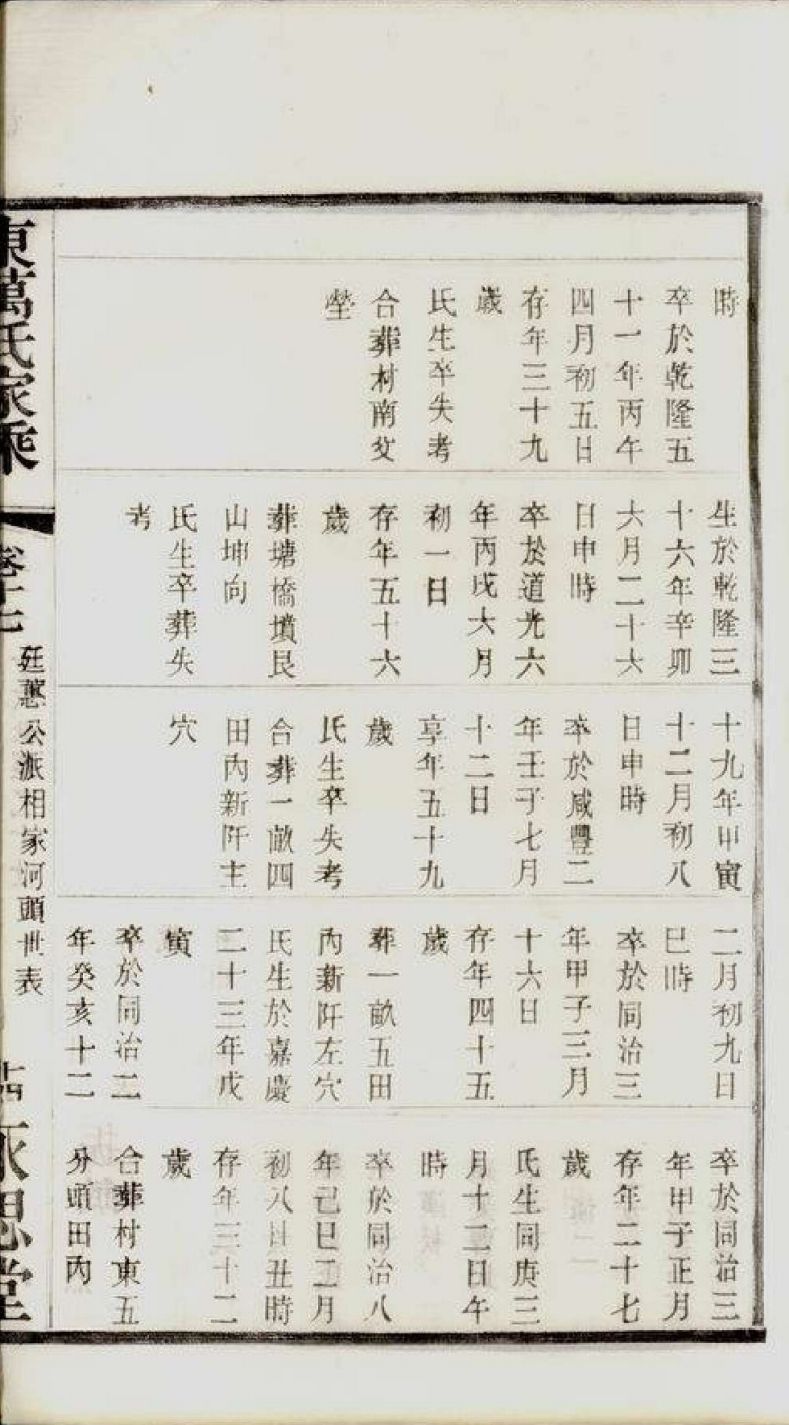 時
卒於乾隆五
十一年丙午
四月初五日
存年三十九
歲
氏生卒失考
合葬村南父
塋
生於乾隆三
十六年辛卯
六月二十六
日申時
卒於道光六
年丙戌六月
初一日
存年五十六
歲
葬塘橋墳艮
山坤向
氏生卒葬失
考
十九年甲寅
十二月初八
日申時
卒於咸豐二
年壬子七月
十二日
享年五十九
歲
氏生卒失考
合葬一畝四
田內新阡主
穴
二月初九日
巳時
卒於同治三
年甲子三月
十六日
存年四十五
歲
葬一畝五田
內新阡左穴
氏生於嘉慶
二十三年戊
寅
卒於同治二
年癸亥十二
卒於同治三
年甲子正月
存年二十七
歲
氏生同庚三
月十二日午
時
卒於同治八
年己巳二月
初八日丑時
存年三十二
歲
合葬村東五
分頭田內
東萬氏家乘
卷十七
廷蕙公派相家河頭世表
永思堂